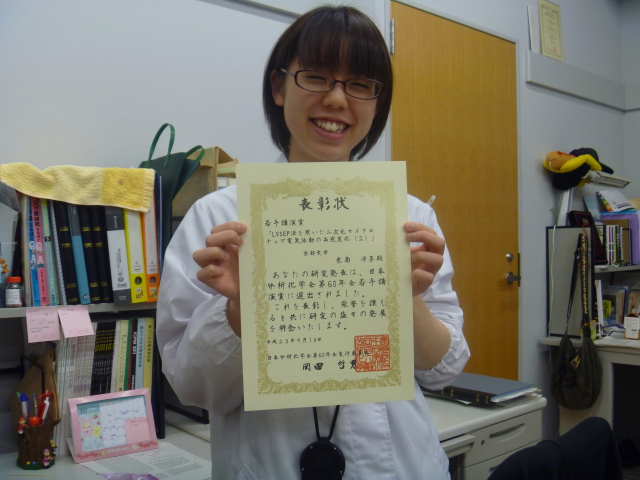 表彰状
若手講演賞
「LVSEP法を用いた二次元マイクロ
チップ電気泳動の高感度化(2)」
京都大学
殿
あなたの研究発表は、日本
分析化学会第60年会若手講
演賞に選出されました。
これを表彰し、栄誉を讃え
るとともに研究の益々の発展
を祈念いたします。
平成23年9月15日
日本分析化学会第60年会実行委員長
岡田 哲男